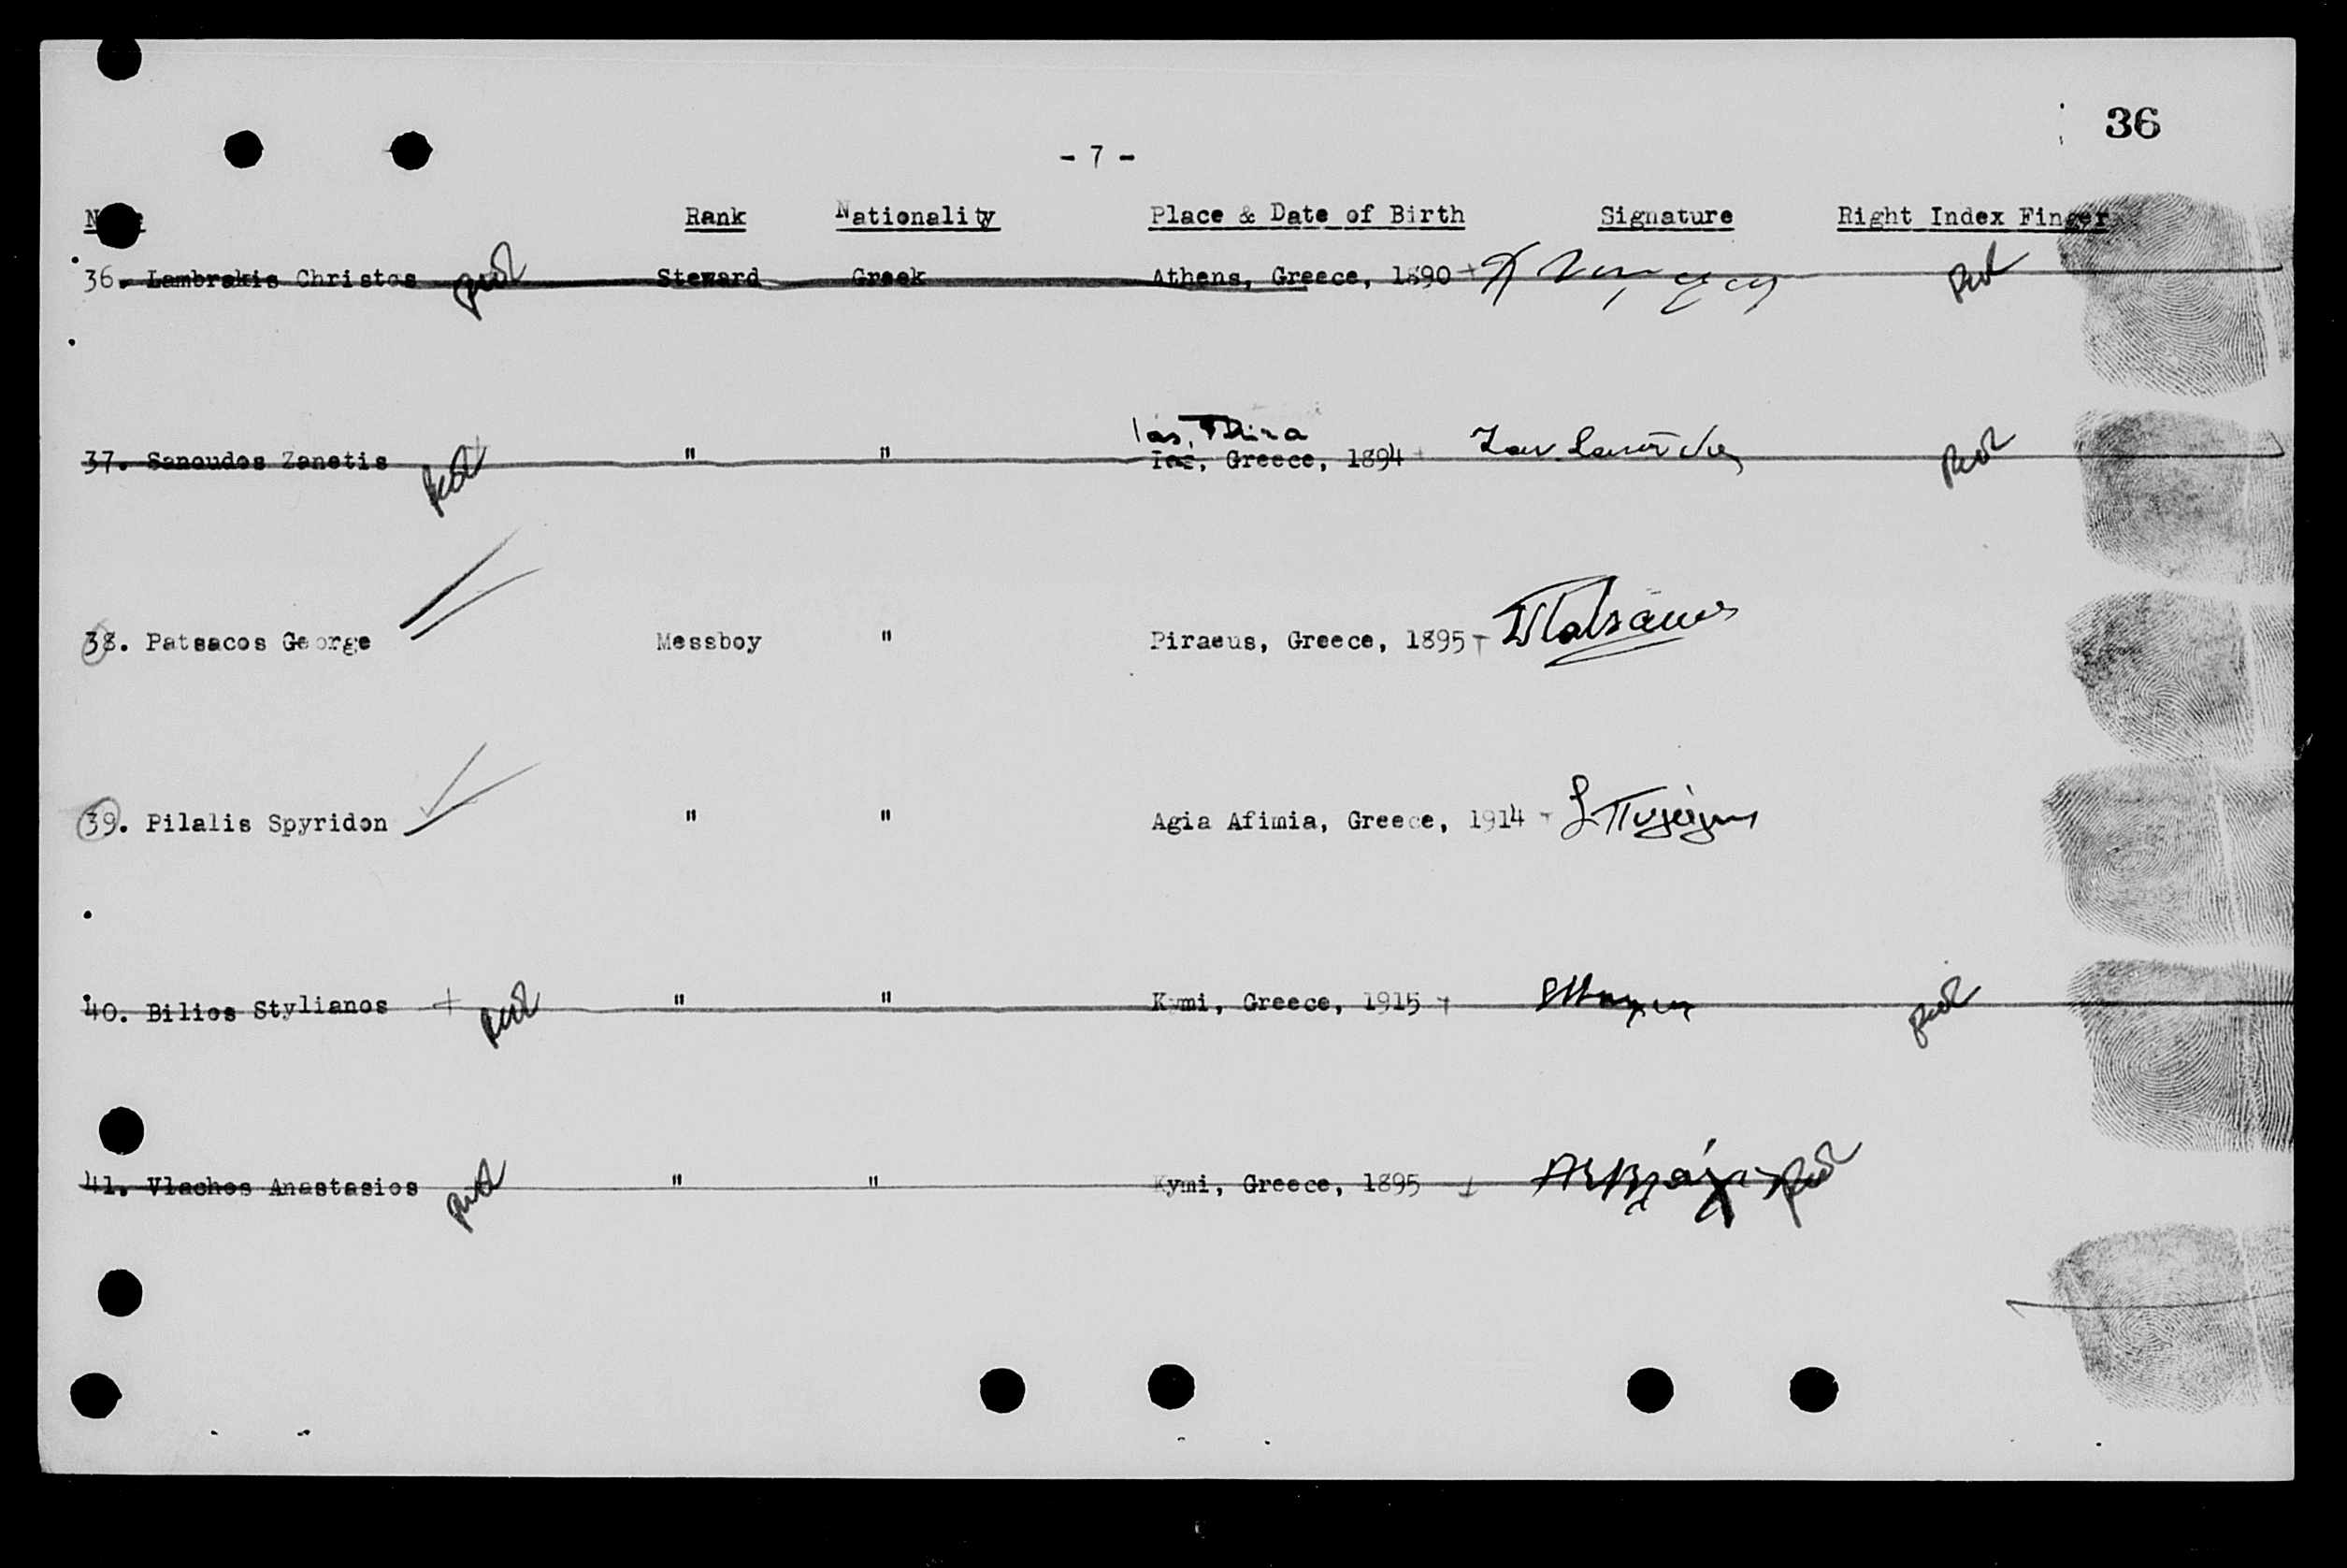 36
- 7 -
Rank Nationality Place & Date of Birth Signature Right Index Finger
36. Lambrakis Christos Steward Greek Athens, Greece, 1890
Ias, Thira
37. Sanoudos Zanetis " " Ias, Greece, 1894
38. Patsacos George Messboy " Piraeus, Greece, 1895
39. Pilalis Spyridon " " Agia Afimia, Greece, 1914
40. Bilios Stylianos " " Kymi, Greece, 1915
41. Vlachos Anastasios " " Kymi, Greece, 1895